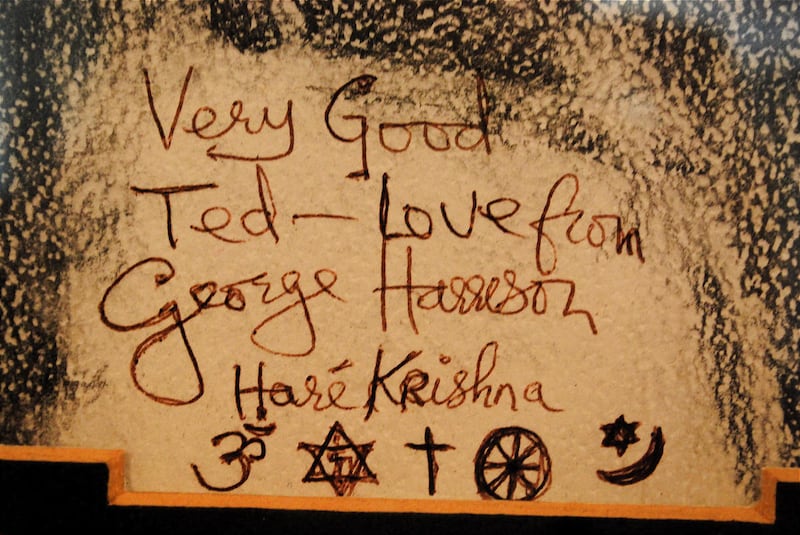 Very Good
Ted — Love from
George Harrison
Haré Krishna
ॐ ✡ ✝ ☸ ☪